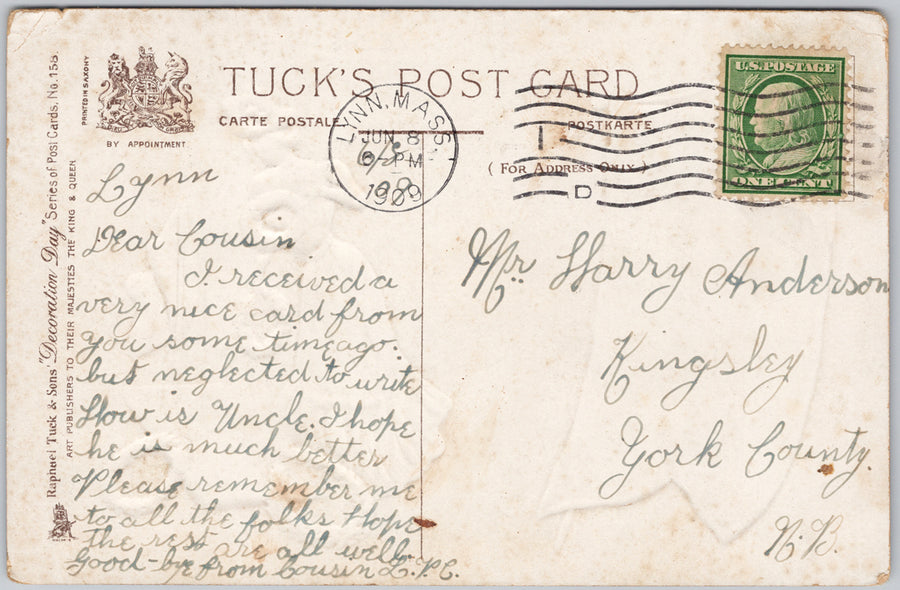 TUCK'S POST CARD
CARTE POSTALE
POSTKARTE
(FOR ADDRESS ONLY.)
BY APPOINTMENT
PRINTED IN SAXONY
Raphael Tuck & Sons' "Decoration Day" Series of Post Cards, No. 158.
ART PUBLISHERS TO THEIR MAJESTIES THE KING & QUEEN
LYNN, MASS.
JUN 8
PM
1909
D
U.S. POSTAGE
ONE CENT
Lynn
Dear Cousin
I received a
very nice card from
you some time ago.
but neglected to write
How is Uncle. I hope
he is much better
Please remember me
to all the folks Hope
the rest are all well.
Good-bye from Cousin L. P. C.
Mr Harry Anderson
Kingsley
York County.
N.B.